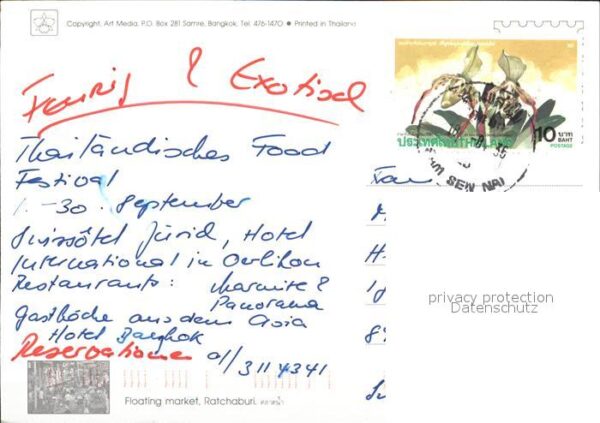 Copyright, Art Media, P.O. Box 281 Samre, Bangkok, Tel: 476-1470 ● Printed in Thailand
Feurig & Exotisch
Thailändisches Food
Festival
1.-30. September
Swissôtel Zürich, Hotel
International in Oerlikon
Restaurants: Marmite &
Panorama
Gastköche aus dem Asia
Hotel Bangkok
Reservationen 01/311 43 41
10 บาท
BAHT
POSTAGE
ประเทศไทย THAILAND
SEN NAI
privacy protection
Datenschutz
Floating market, Ratchaburi. ตลาดน้ำ